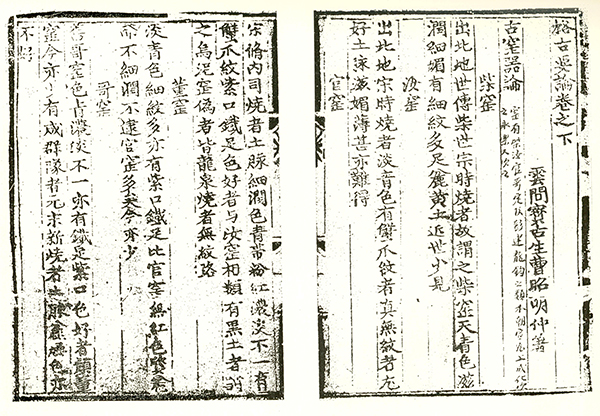 格古要論卷之下
雲間寳古生曹昭明仲著
古窑器論
柴窑
出北地世傳柴世宗時燒者故謂之柴窑天青色滋
潤細媚有細紋多足麄黄土近世少見
汝窑
出北地宋時燒者淡青色有蠏爪紋者真無紋者尤
好土脉滋媚薄甚亦難得
官窑
宋脩内司燒者土脉細潤色青帶粉紅濃淡不一有
蠏爪紋紫口鐵足色好者与汝窑相類有黒土者謂
之烏泥窑偽者皆龍泉燒者無紋路
董窑
淡青色細紋多亦有紫口鐵足比官窑無紅色質
而不細潤不逮官窑多矣今亦少
哥窑
舊哥窑色青濃淡不一亦有鐵足紫口色好者類董
窑今亦少有成群隊者元末新燒者土脉麄燥色亦
不好